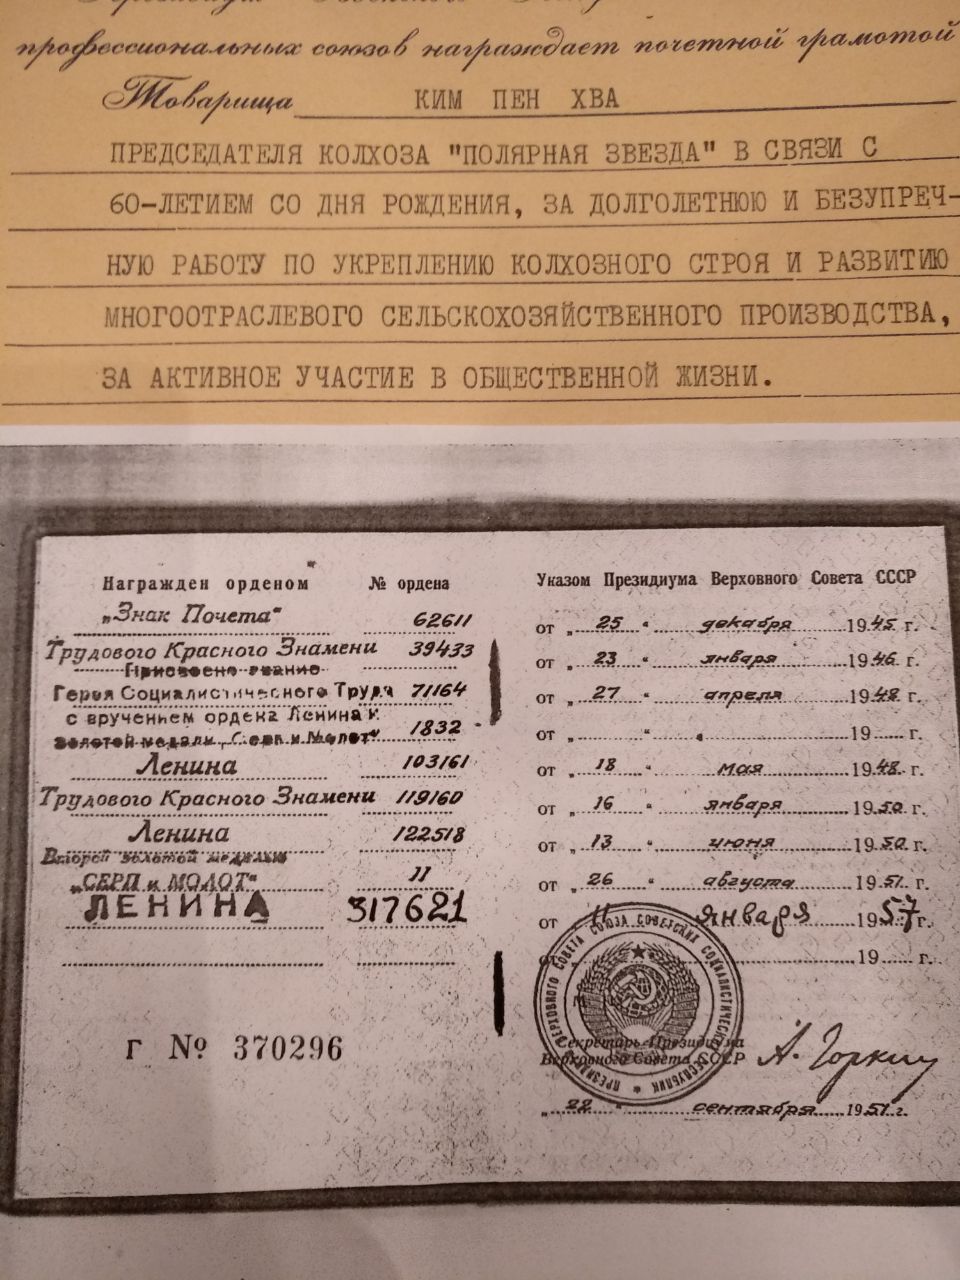 профессиональных союзов награждает почетной грамотой
Товарища КИМ ПЕН ХВА
ПРЕДСЕДАТЕЛЯ КОЛХОЗА "ПОЛЯРНАЯ ЗВЕЗДА" В СВЯЗИ С
60-ЛЕТИЕМ СО ДНЯ РОЖДЕНИЯ, ЗА ДОЛГОЛЕТНЮЮ И БЕЗУПРЕЧ-
НУЮ РАБОТУ ПО УКРЕПЛЕНИЮ КОЛХОЗНОГО СТРОЯ И РАЗВИТИЮ
МНОГООТРАСЛЕВОГО СЕЛЬСКОХОЗЯЙСТВЕННОГО ПРОИЗВОДСТВА,
ЗА АКТИВНОЕ УЧАСТИЕ В ОБЩЕСТВЕННОЙ ЖИЗНИ.
Награжден орденом № ордена
„Знак Почета" 62611
Трудового Красного Знамени 39433
Присвоено звание
Героя Социалистического Труда 71164
с вручением ордена Ленина и
Золотой медали „Серп и Молот" 1832
Ленина 103161
Трудового Красного Знамени 119160
Ленина 122518
Второй золотой медалью
„СЕРП и МОЛОТ" 11
ЛЕНИНА 317621
Г № 370296
Указом Президиума Верховного Совета СССР
от „25" декабря 1945 г.
от „23" января 1946 г.
от „27" апреля 1948 г.
от „ " 19 г.
от „18" мая 1948 г.
от „16" января 1950 г.
от „13" июня 1950 г.
от „26" августа 1951 г.
от „11" января 1957 г.
от 19 г.
Секретарь Президиума
Верховного Совета СССР А. Горкин
„22" сентября 1951 г.